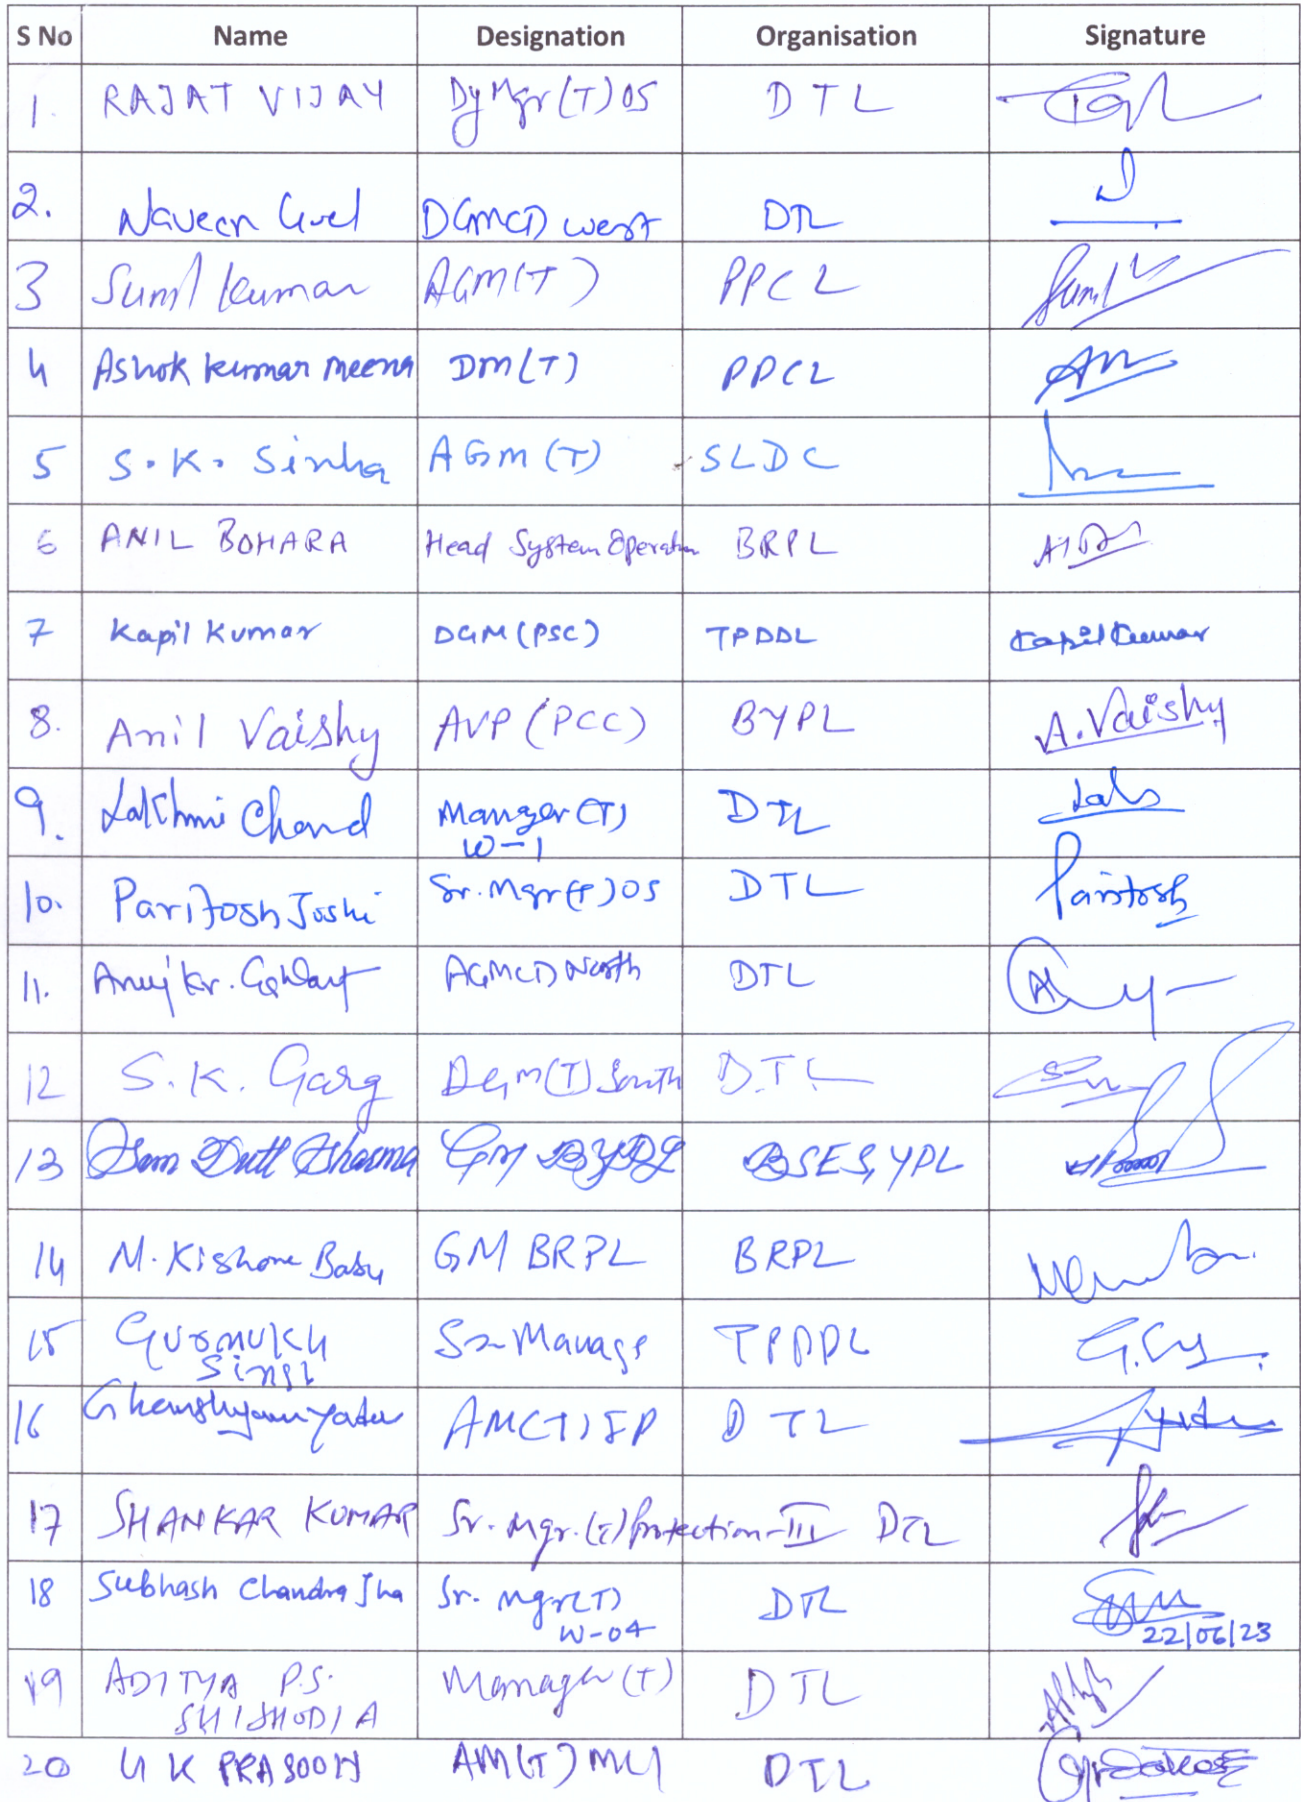 S No Name Designation Organisation Signature
1. RAJAT VIJAY Dy Mgr (T) OS DTL
2. Naveen Goel DGM(T) west DTL
3 Sunil Kumar AGM(T) PPCL Sunil
4 Ashok kumar meena DM(T) PPCL
5 S.K. Sinha AGM (T) SLDC
6 ANIL BOHARA Head System Operation BRPL
7 Kapil Kumar DGM (PSC) TPDDL Kapil Kumar
8. Anil Vaishy AVP (PCC) BYPL A. Vaishy
9. Lakhmi Chand Manager (T) DTL
W-1
10. Paritosh Joshi Sr. Mgr (T) OS DTL Paritosh
11. Anuj Kr. AGM(T) North DTL
12 S.K. Garg DGM(T) South DTL
13 Dutt Sharma GM BYPL BSES, YPL
14 M. Kishore Babu GM BRPL BRPL
15 GURMUKH Sr Manager TPDDL
Singh
16 Ghanshyam Yadav AM(T) DTL
17 SHANKAR KUMAR Sr. Mgr. (T) Protection-III DTL
18 Subhash Chandra Jha Sr. Mgr(T) DTL
W-04 22/06/23
19 ADITYA P.S. Manager (T) DTL
SHISHODIA
20 PRASOON AM(T) DTL